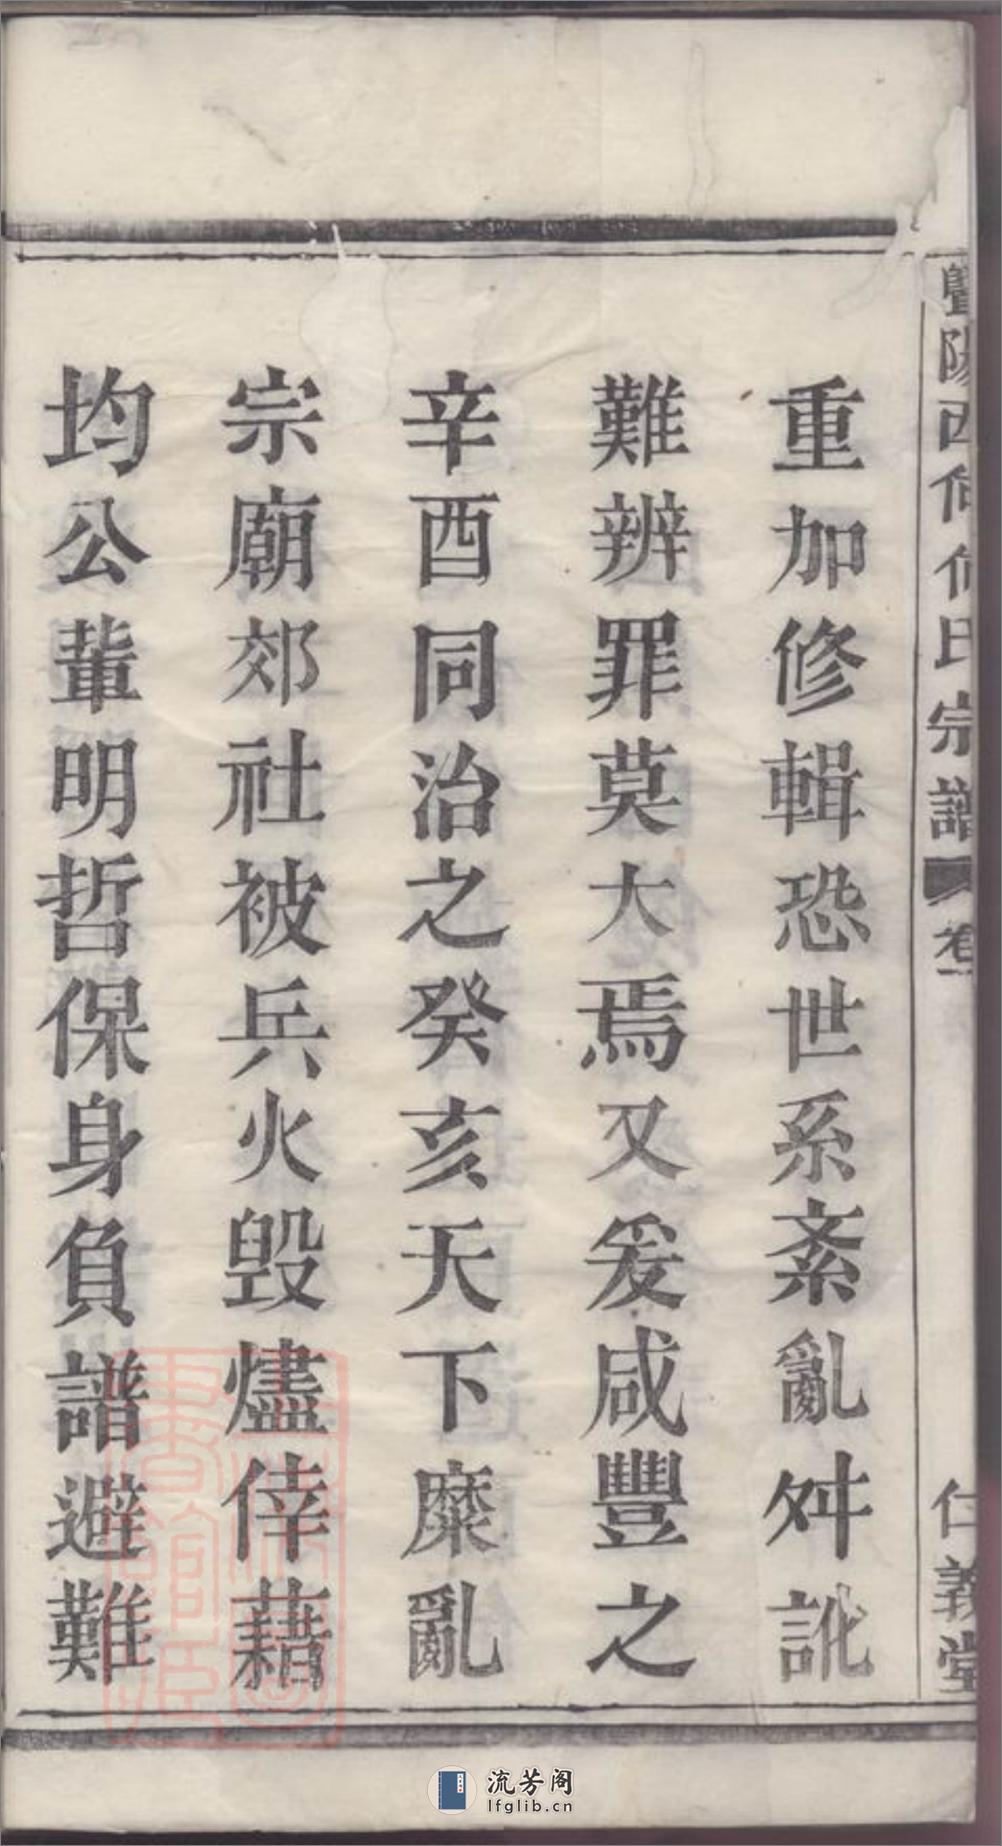 暨陽西何何氏宗譜 卷一
仁義堂
重加修輯恐世系紊亂舛訛
難辨罪莫大焉又爰咸豐之
辛酉同治之癸亥天下糜亂
宗廟郊社被兵火毀燼倖藉
均公輩明哲保身負譜避難
流芳阁
lfglib.cn